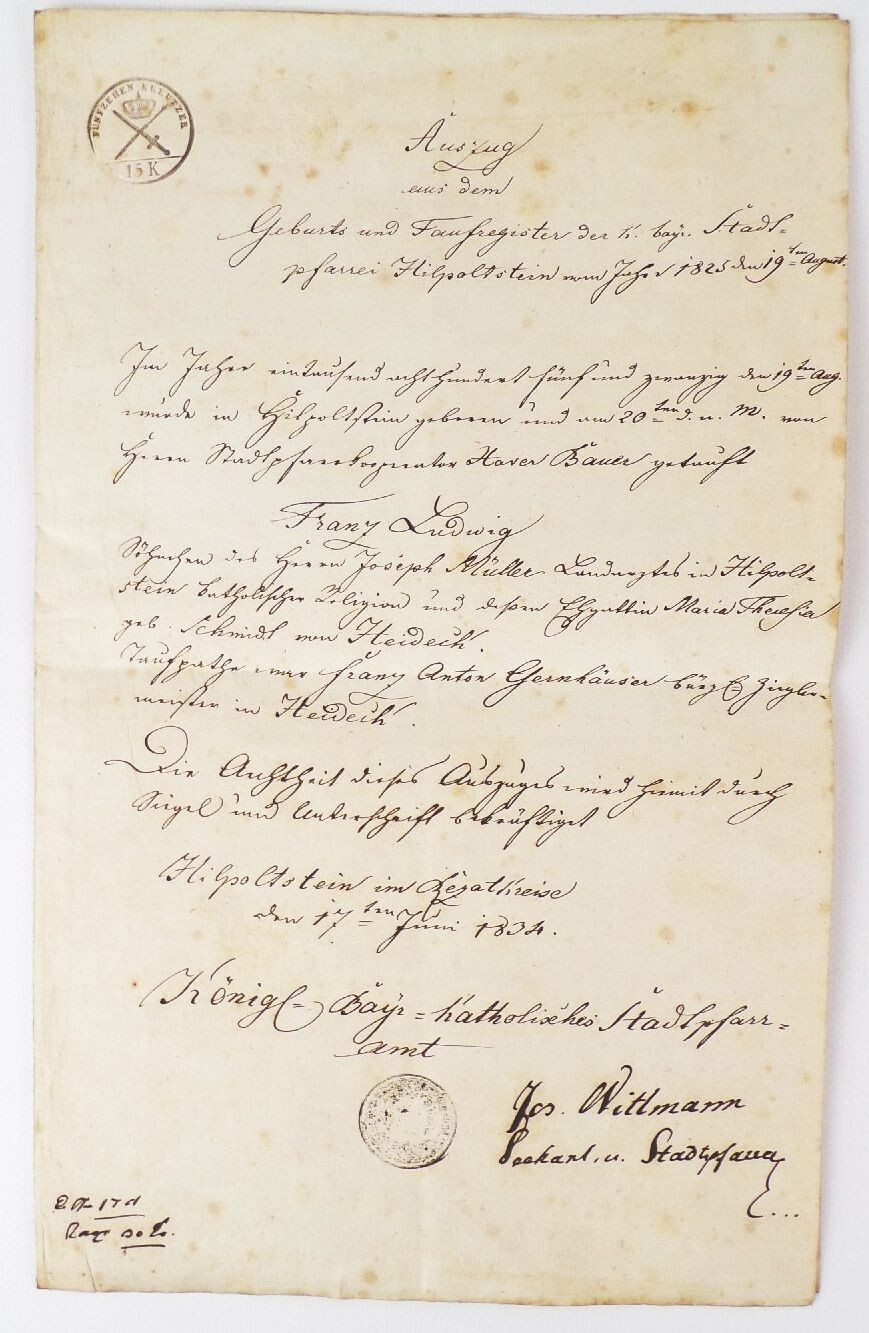 FÜNFZEHEN KREUTZER
15 K
Auszug
aus dem
Geburts und Taufregister der k. bayr. Stadt-
pfarrei Hilpoltstein vom Jahr 1825 den 19ten August.
Im Jahre eintausend achthundert fünf und zwanzig den 19ten Aug.
wurde in Hilpoltstein geboren und am 20ten d. n. M. von
Herrn Stadtpfarrkooperator Xaver Bauer getauft
Franz Ludwig
Söhnchen des Herrn Joseph Müller Landarztes in Hilpolt-
stein katholischer Religion und deßen Ehgattin Maria Theresia
geb. Schmidt von Heideck.
Taufpathe war Franz Anton Gernhäuser bürgl. Ziegler-
meister in Heideck.
Die Aechtheit dieses Auszuges wird hiemit durch
Siegel und Unterschrift bekräftiget
Hilpoltstein im Rezatkreise
den 17ten Juni 1834.
Königl. Bayr. katholisches Stadtpfarr-
amt
Jos. Wittmann
Dechant. u. Stadtpfarrer